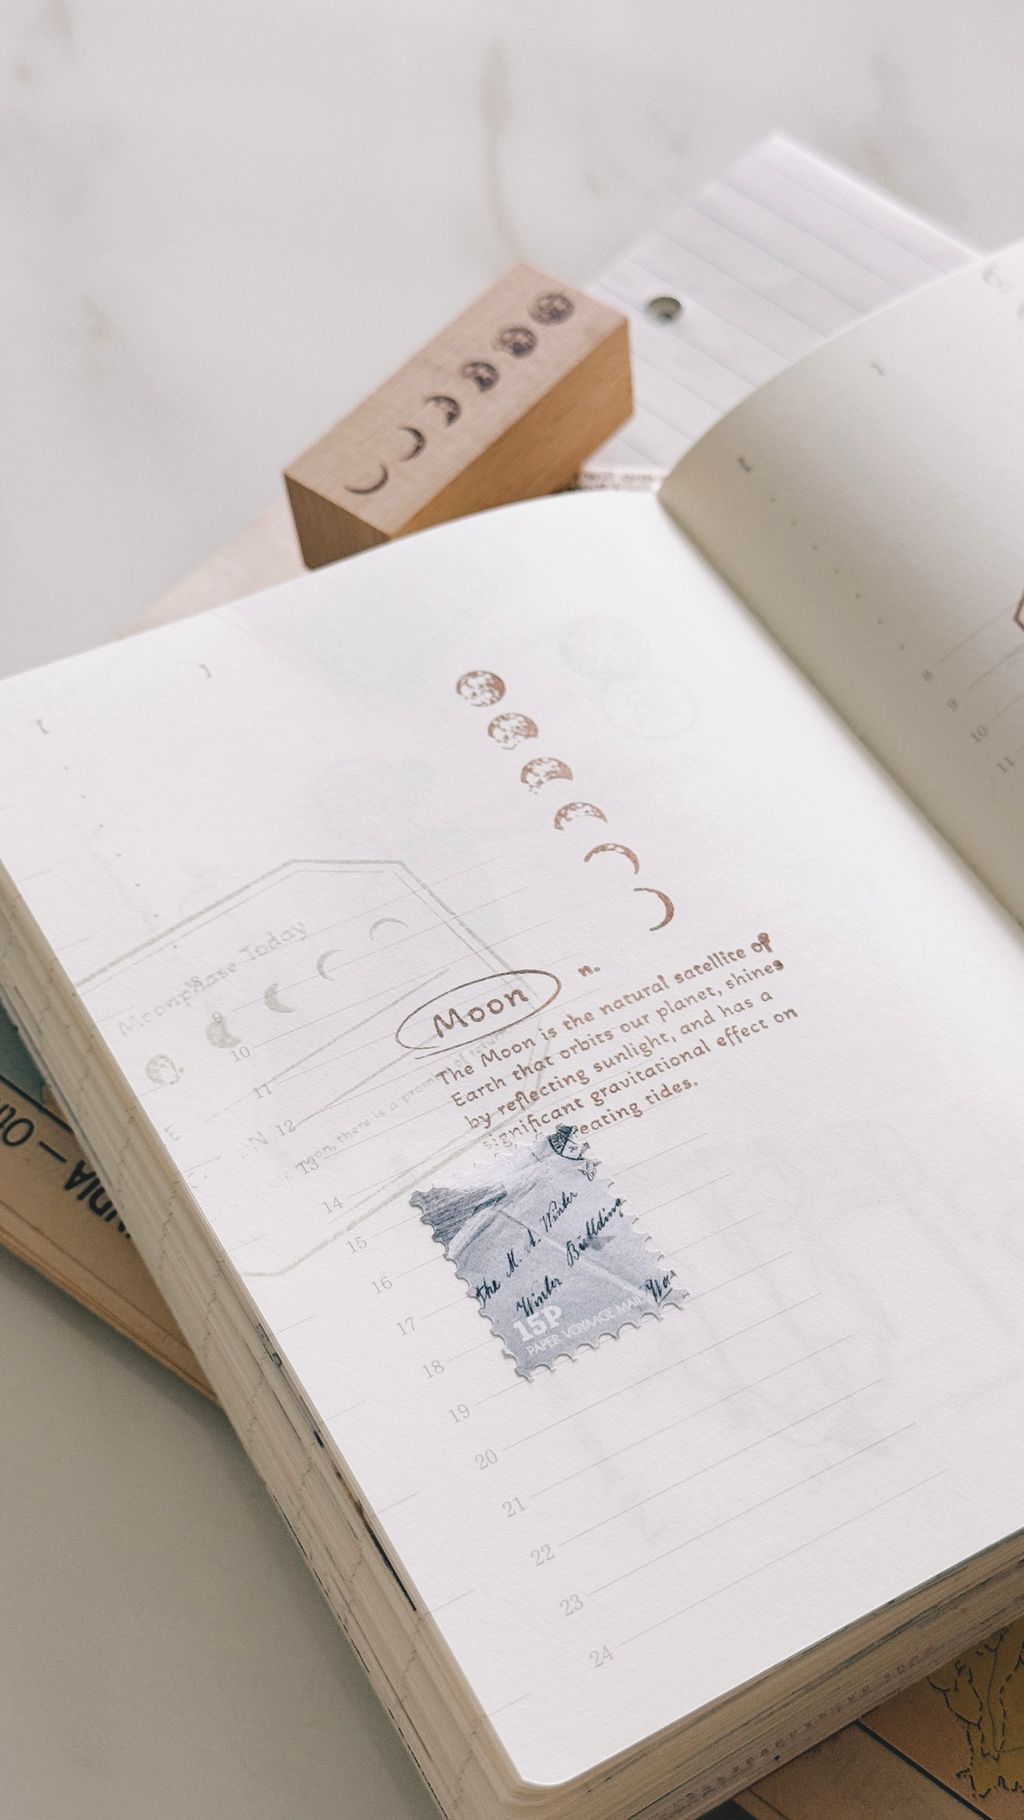 Moon
n.
The Moon is the natural satellite of
Earth that orbits our planet, shines
by reflecting sunlight, and has a
significant gravitational effect on
eating tides.
Moonphase Today
the M. A. Winter
Winter Building
15P
PAPER VOYAGE
9
10
11
12
13
14
15
16
17
18
19
20
21
22
23
24
8
9
10
11
INDIA —